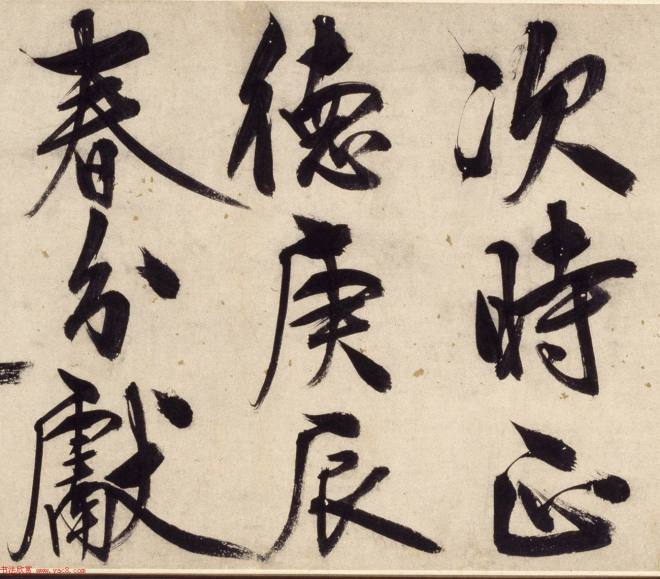 次時正
德庚辰
春分獻
书法欣赏 www.yac8.com